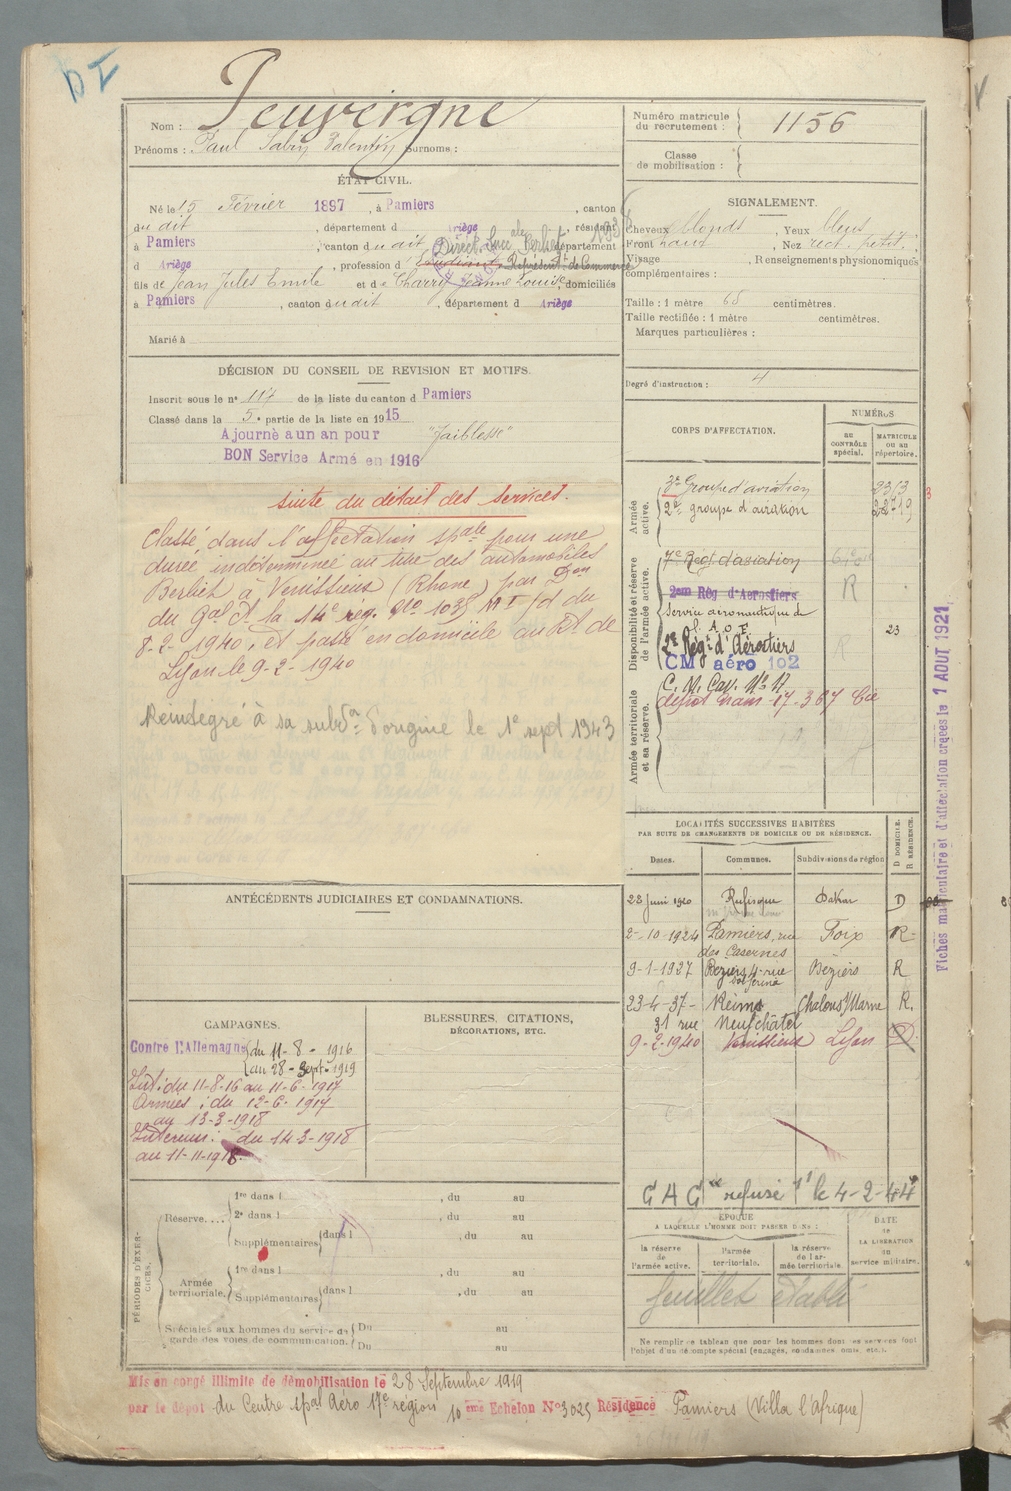 Nom :
Prénoms : Paul Valentin Surnoms :
ÉTAT CIVIL.
Né le 15 Février 1897, à Pamiers, canton
du dit, département d Ariège, résidant
à Pamiers, canton du dit, département
d Ariège, profession d Etudiant Représent. de Commerce
Direct. Succ ale Berliet
fils de Jean Jules Emile et de Charry Jeanne Louise, domiciliés
à Pamiers, canton du dit, département d Ariège
Marié à
DÉCISION DU CONSEIL DE REVISION ET MOTIFS.
Inscrit sous le n° 117 de la liste du canton d Pamiers
Classé dans la 5e partie de la liste en 1915
Ajourné a un an pour "faiblesse"
BON Service Armé en 1916
suite du détail des services.
Classé dans l'affectation spale pour une
durée indéterminée au titre des automobiles
Berliet à Venissieux (Rhone) par Don
du Gal Ct la 14e reg. No 1035 du
8-2-1940, et passé en domicile au Rt de
Lyon le 9-2-1940
Reintegré à sa subdon d'origine le 1e sept 1943
ANTÉCÉDENTS JUDICIAIRES ET CONDAMNATIONS.
CAMPAGNES.
Contre l'Allemagne du 11-8-1916
au 28-Sept-1919
Int: du 11-8-16 au 11-6-1917
Armées: du 12-6-1917
au 13-3-1918
Interieur: du 14-3-1918
au 11-11-1918.
BLESSURES, CITATIONS,
DÉCORATIONS, ETC.
PÉRIODES D'EXERCICES.
Réserve....
1re dans l , du au
2e dans l , du au
Supplémentaires dans l , du au
Armée territoriale.
1re dans l , du au
Supplémentaires dans l , du au
Spéciales aux hommes du service de
garde des voies de communication.
Du au
Du au
Mis en congé illimité de démobilisation le 28 Septembre 1919
par le dépôt du Centre spal Aéro 17e région 10 eme Echelon No 3025 Résidence Pamiers (Villa l'Afrique)
Numéro matricule
du recrutement : 1156
Classe
de mobilisation :
SIGNALEMENT.
Cheveux blonds, Yeux bleus
Front haut, Nez rect. petit.
Visage , Renseignements physionomiques
complémentaires :
Taille : 1 mètre 68 centimètres.
Taille rectifiée : 1 mètre centimètres.
Marques particulières :
Degré d'instruction : 4
CORPS D'AFFECTATION.
NUMÉROS
AU CONTRÔLE spécial.
MATRICULE OU AU répertoire.
Armée active.
Groupe d'aviation
2e groupe d'aviation
Disponibilité et réserve
de l'armée active.
7e Regt d'aviation
R
2em Rég d'Aérostiers
Service aeronautique de
l'A.O.F. 23
2e Régt d'Aérostiers R
CM aéro 102
Armée territoriale
et sa réserve.
depot trans-17-367 Cie
LOCALITÉS SUCCESSIVES HABITÉES
PAR SUITE DE CHANGEMENTS DE DOMICILE OU DE RÉSIDENCE.
Dates. Communes. Subdivisions de région D DOMICILE. R RÉSIDENCE.
23 Juin 1920 Rufisque Dakar D
2-10-1924 Pamiers, rue Foix R
des Casernes
9-1-1927 Beziers, 4 rue Béziers R
Solferino
23-4-37- Reims Chalons s/Marne R.
31 rue Neufchâtel
9-2-1940 Venissieux Lyon D
refusé le 4-2-44
ÉPOQUE
À LAQUELLE L'HOMME DOIT PASSER DANS :
la réserve
de l'armée active.
l'armée
territoriale.
la réserve
de l'armée territoriale.
DATE
de
LA LIBÉRATION
du
service militaire.
feuillet établi
Ne remplir ce tableau que pour les hommes dont les services font
l'objet d'un décompte spécial (engagés, condamnés, omis, etc.).
Fiches matriculaire et d'affectation créées le 1 AOUT 1921